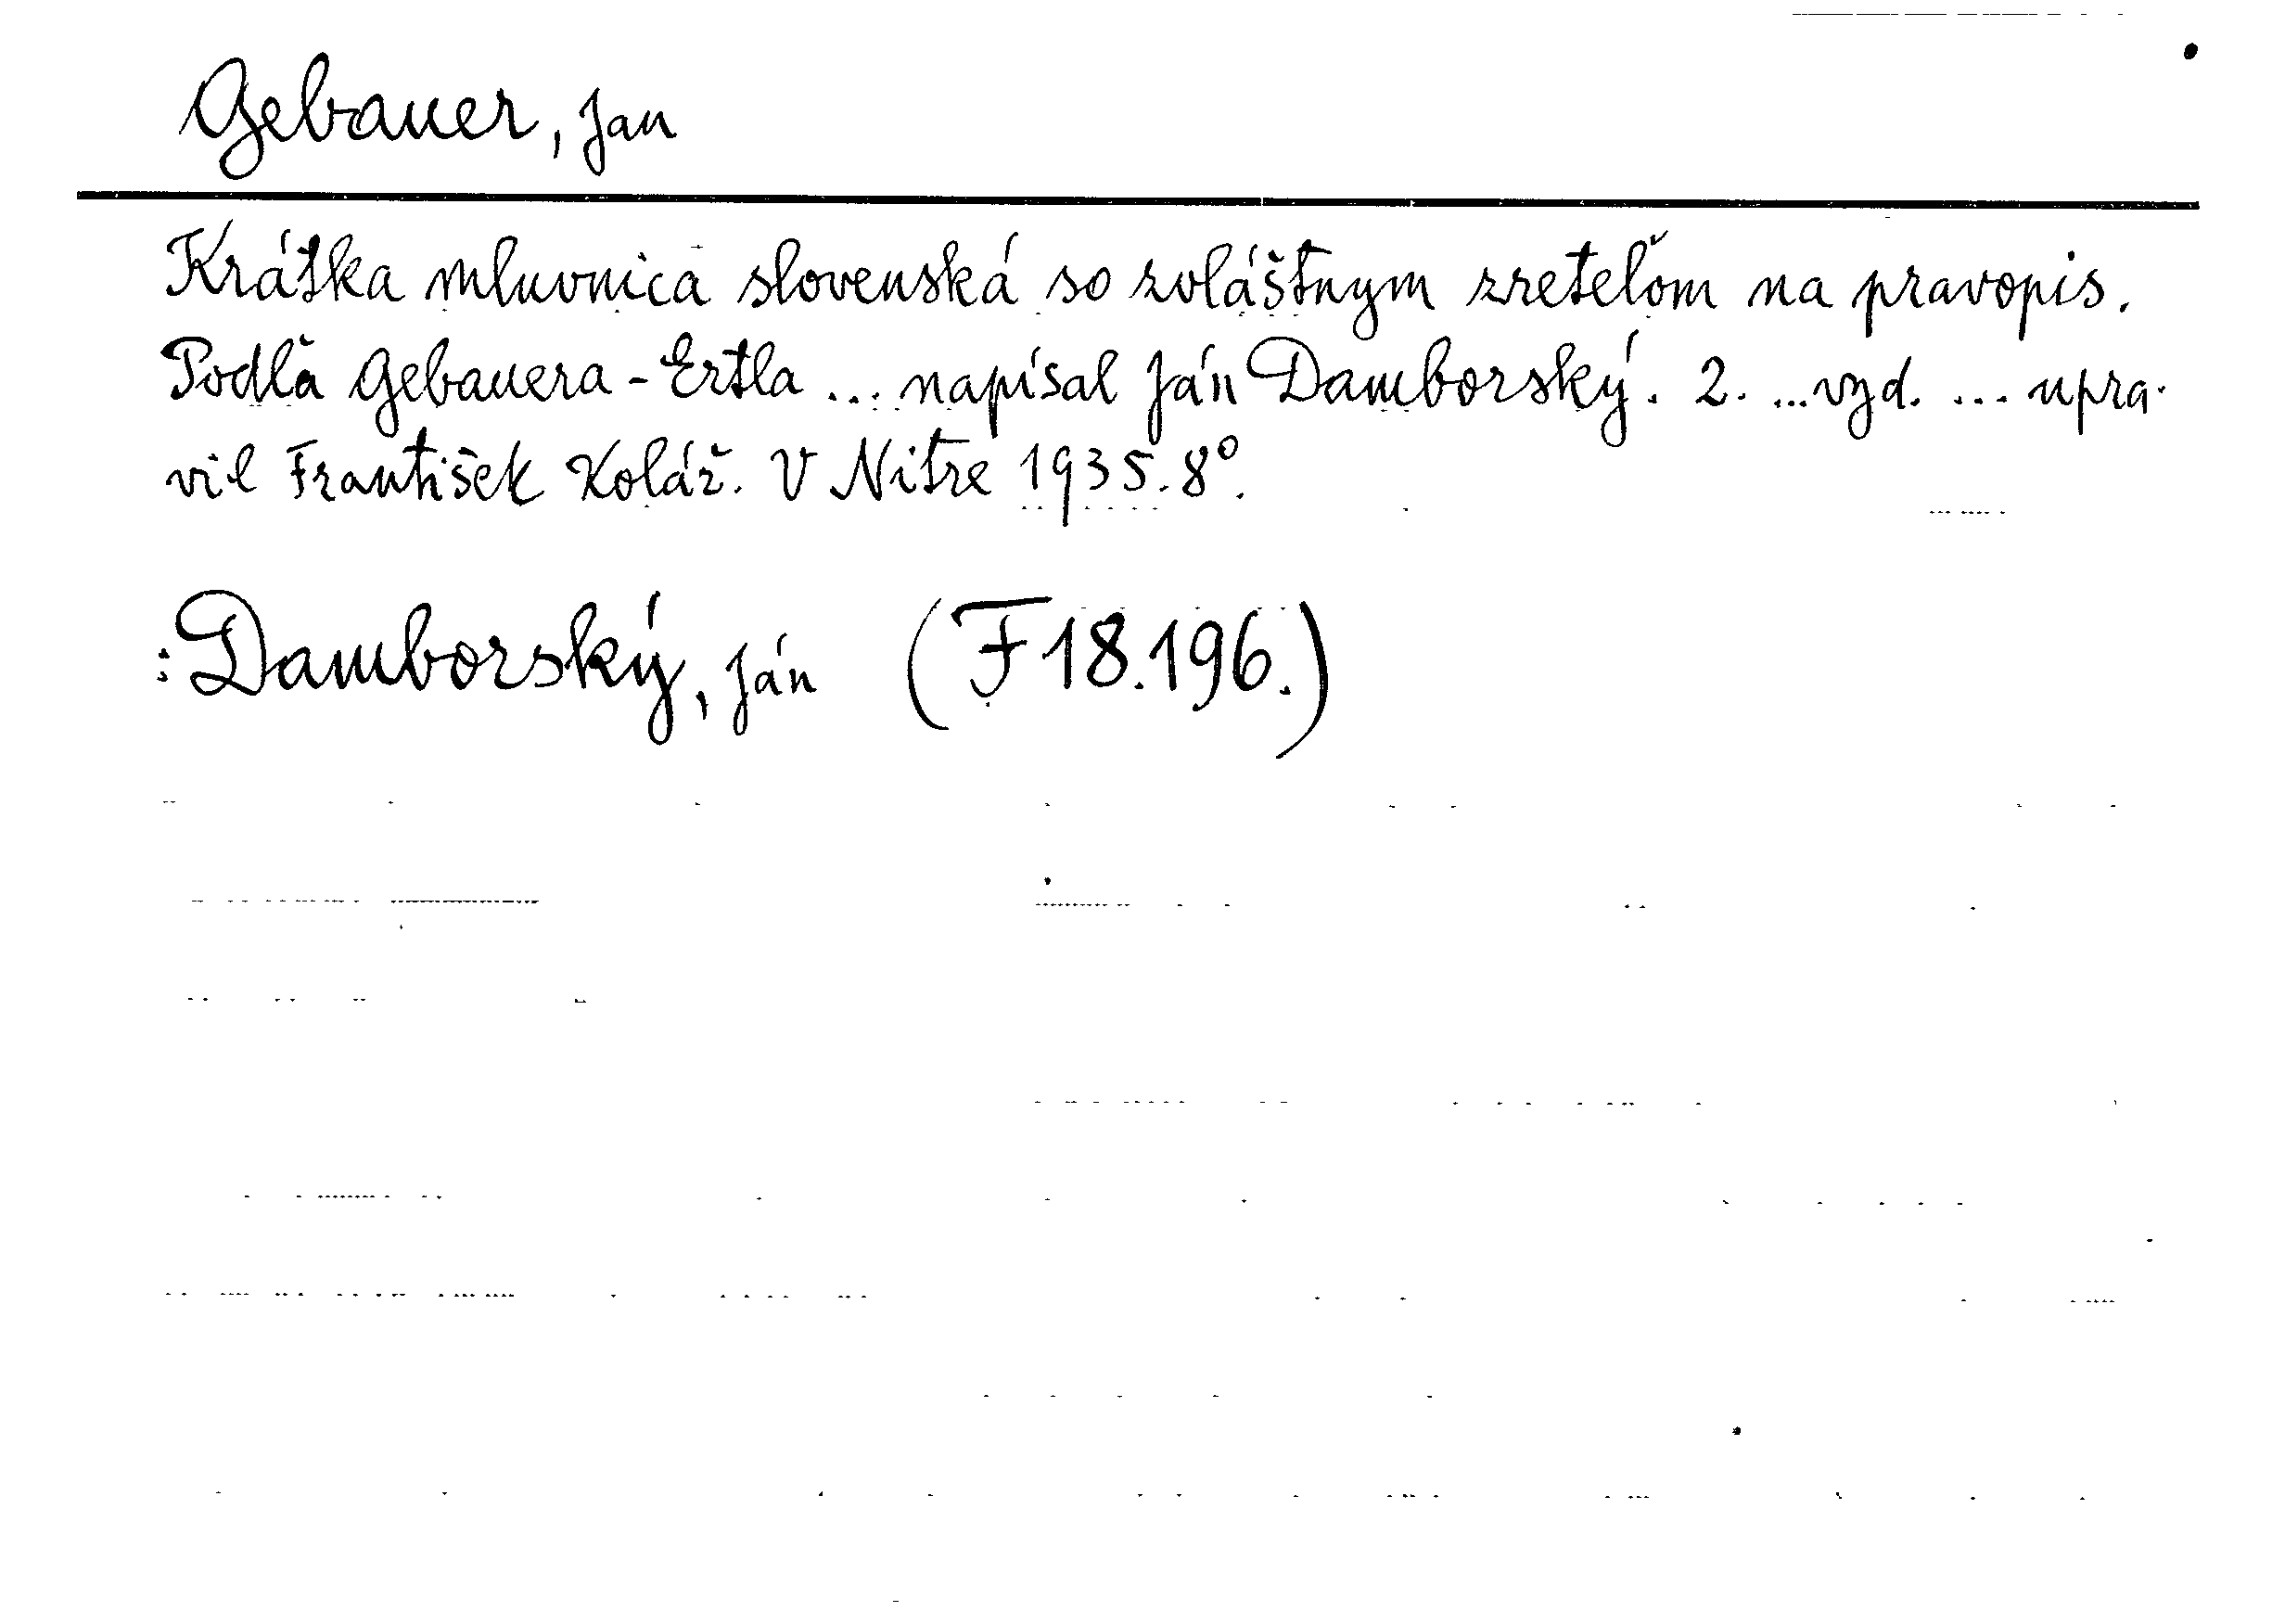 Gebauer, Jan
Krátka mluvnica slovenská so zvláštnym zreteľom na pravopis.
Podľa Gebauera-Ertla ... napísal Ján Damborský. 2. ... vyd. ... upra-
vil František Kolář. V Nitre 1935. 8°.
: Damborský, Ján (F 18.196.)